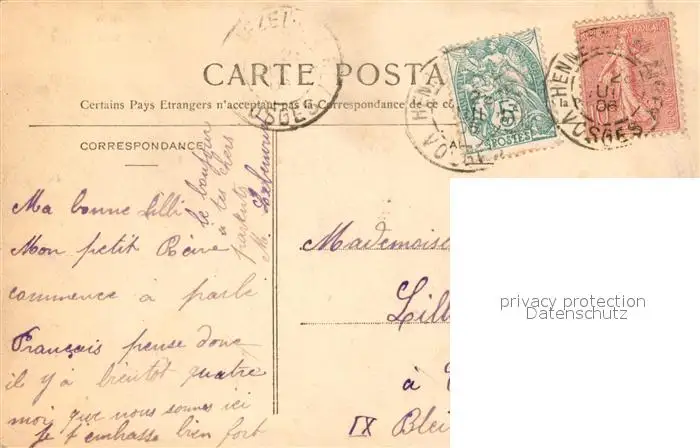 CARTE POSTA
Certains Pays Etrangers n'acceptent pas la Correspondance de ce cô
CORRESPONDANCE
le bonjour
à tes chers
parents
M.
Ma bonne Lilli
Mon petit
commence à parle
Français pense donc
il y à bientôt quatre
moi que nous sommes ici
Je t'embrasse bien fort
Mademoise
Lill
à
IX Blei
HENNE
VOSGES
HENNE
VOSGES
VOSGES
5
POSTES
privacy protection
Datenschutz